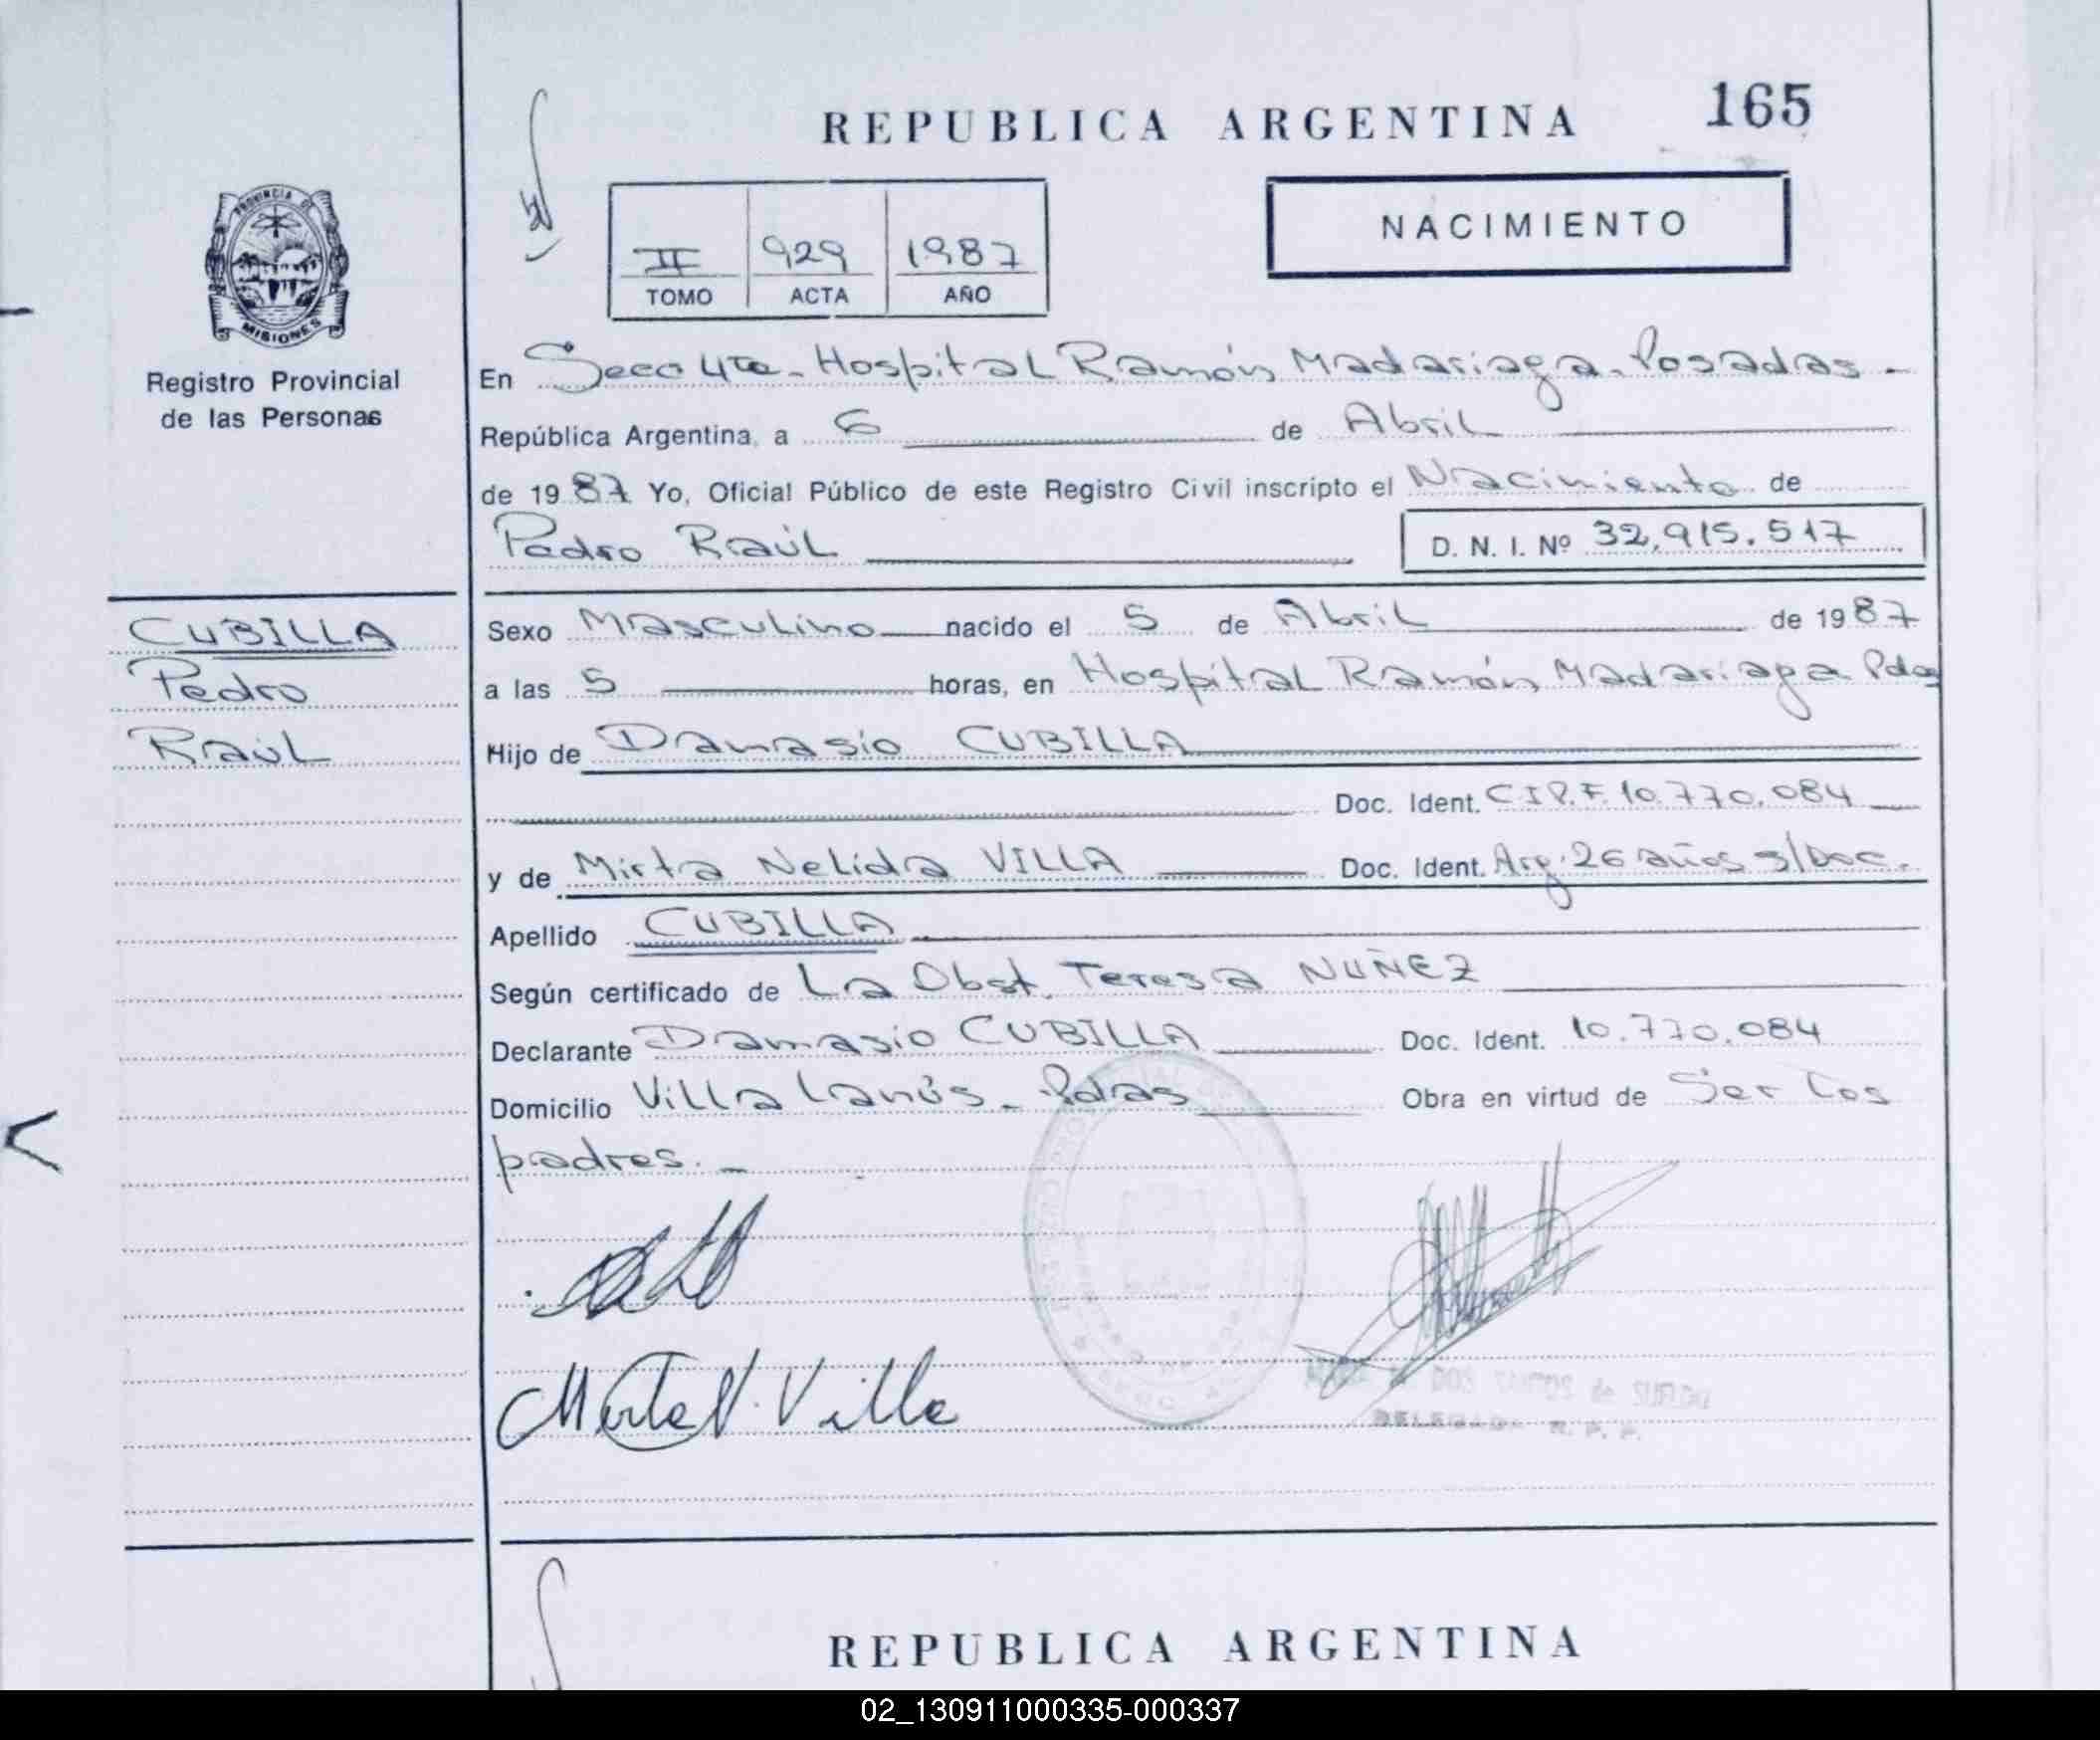 REPUBLICA ARGENTINA
165
PROVINCIA DE
MISIONES
Registro Provincial
de las Personas
II 929 1987
TOMO ACTA AÑO
NACIMIENTO
En Secc 4ta - Hospital Ramón Madariaga - Posadas -
República Argentina, a 6 de Abril
de 1987 Yo, Oficial Público de este Registro Civil inscripto el Nacimiento de
Pedro Raúl D. N. I. Nº 32.915.517
CUBILLA
Pedro
Raúl
Sexo Masculino nacido el 5 de Abril de 1987
a las 5 horas, en Hospital Ramón Madariaga Pdas
Hijo de Damasio CUBILLA
Doc. Ident. CI P.F. 10.770.084
y de Mirta Nelida VILLA Doc. Ident. Arg. 26 años s/Doc.
Apellido CUBILLA
Según certificado de La Obst. Teresa NUÑEZ
Declarante Damasio CUBILLA Doc. Ident. 10.770.084
Domicilio Villa Lanús - Pdas Obra en virtud de Ser los
padres. -
Mirta N. Villa
DOS SANTOS de
DELEGADA R. P. P.
REPUBLICA ARGENTINA
02_130911000335-000337